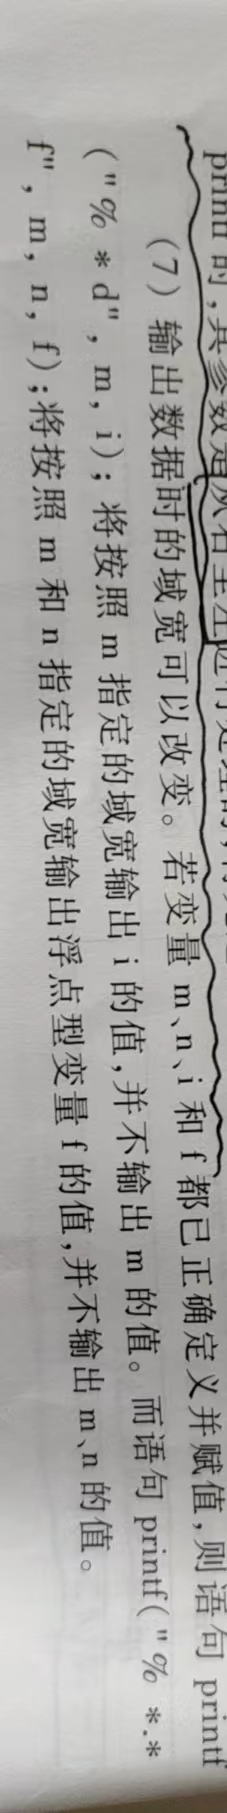 printf 时,其参数是从右至左进行处理的,
(7) 输出数据时的域宽可以改变。若变量 m、n、i 和 f 都已正确定义并赋值,则语句 printf
("% * d", m, i);将按照 m 指定的域宽输出 i 的值,并不输出 m 的值。而语句 printf("% *.*
f", m, n, f);将按照 m 和 n 指定的域宽输出浮点型变量 f 的值,并不输出 m、n 的值。